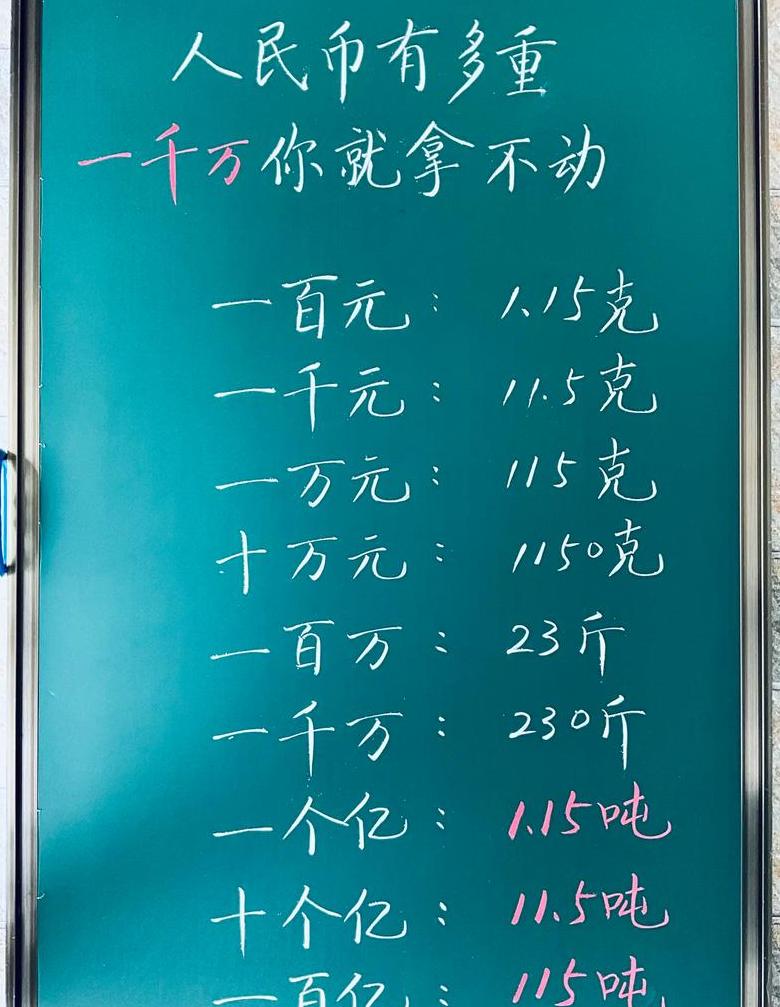 人民币有多重
一千万你就拿不动
一百元: 1.15克
一千元: 11.5克
一万元: 115克
十万元: 1150克
一百万: 23斤
一千万: 230斤
一个亿: 1.15吨
十个亿: 11.5吨
一百亿: 115吨